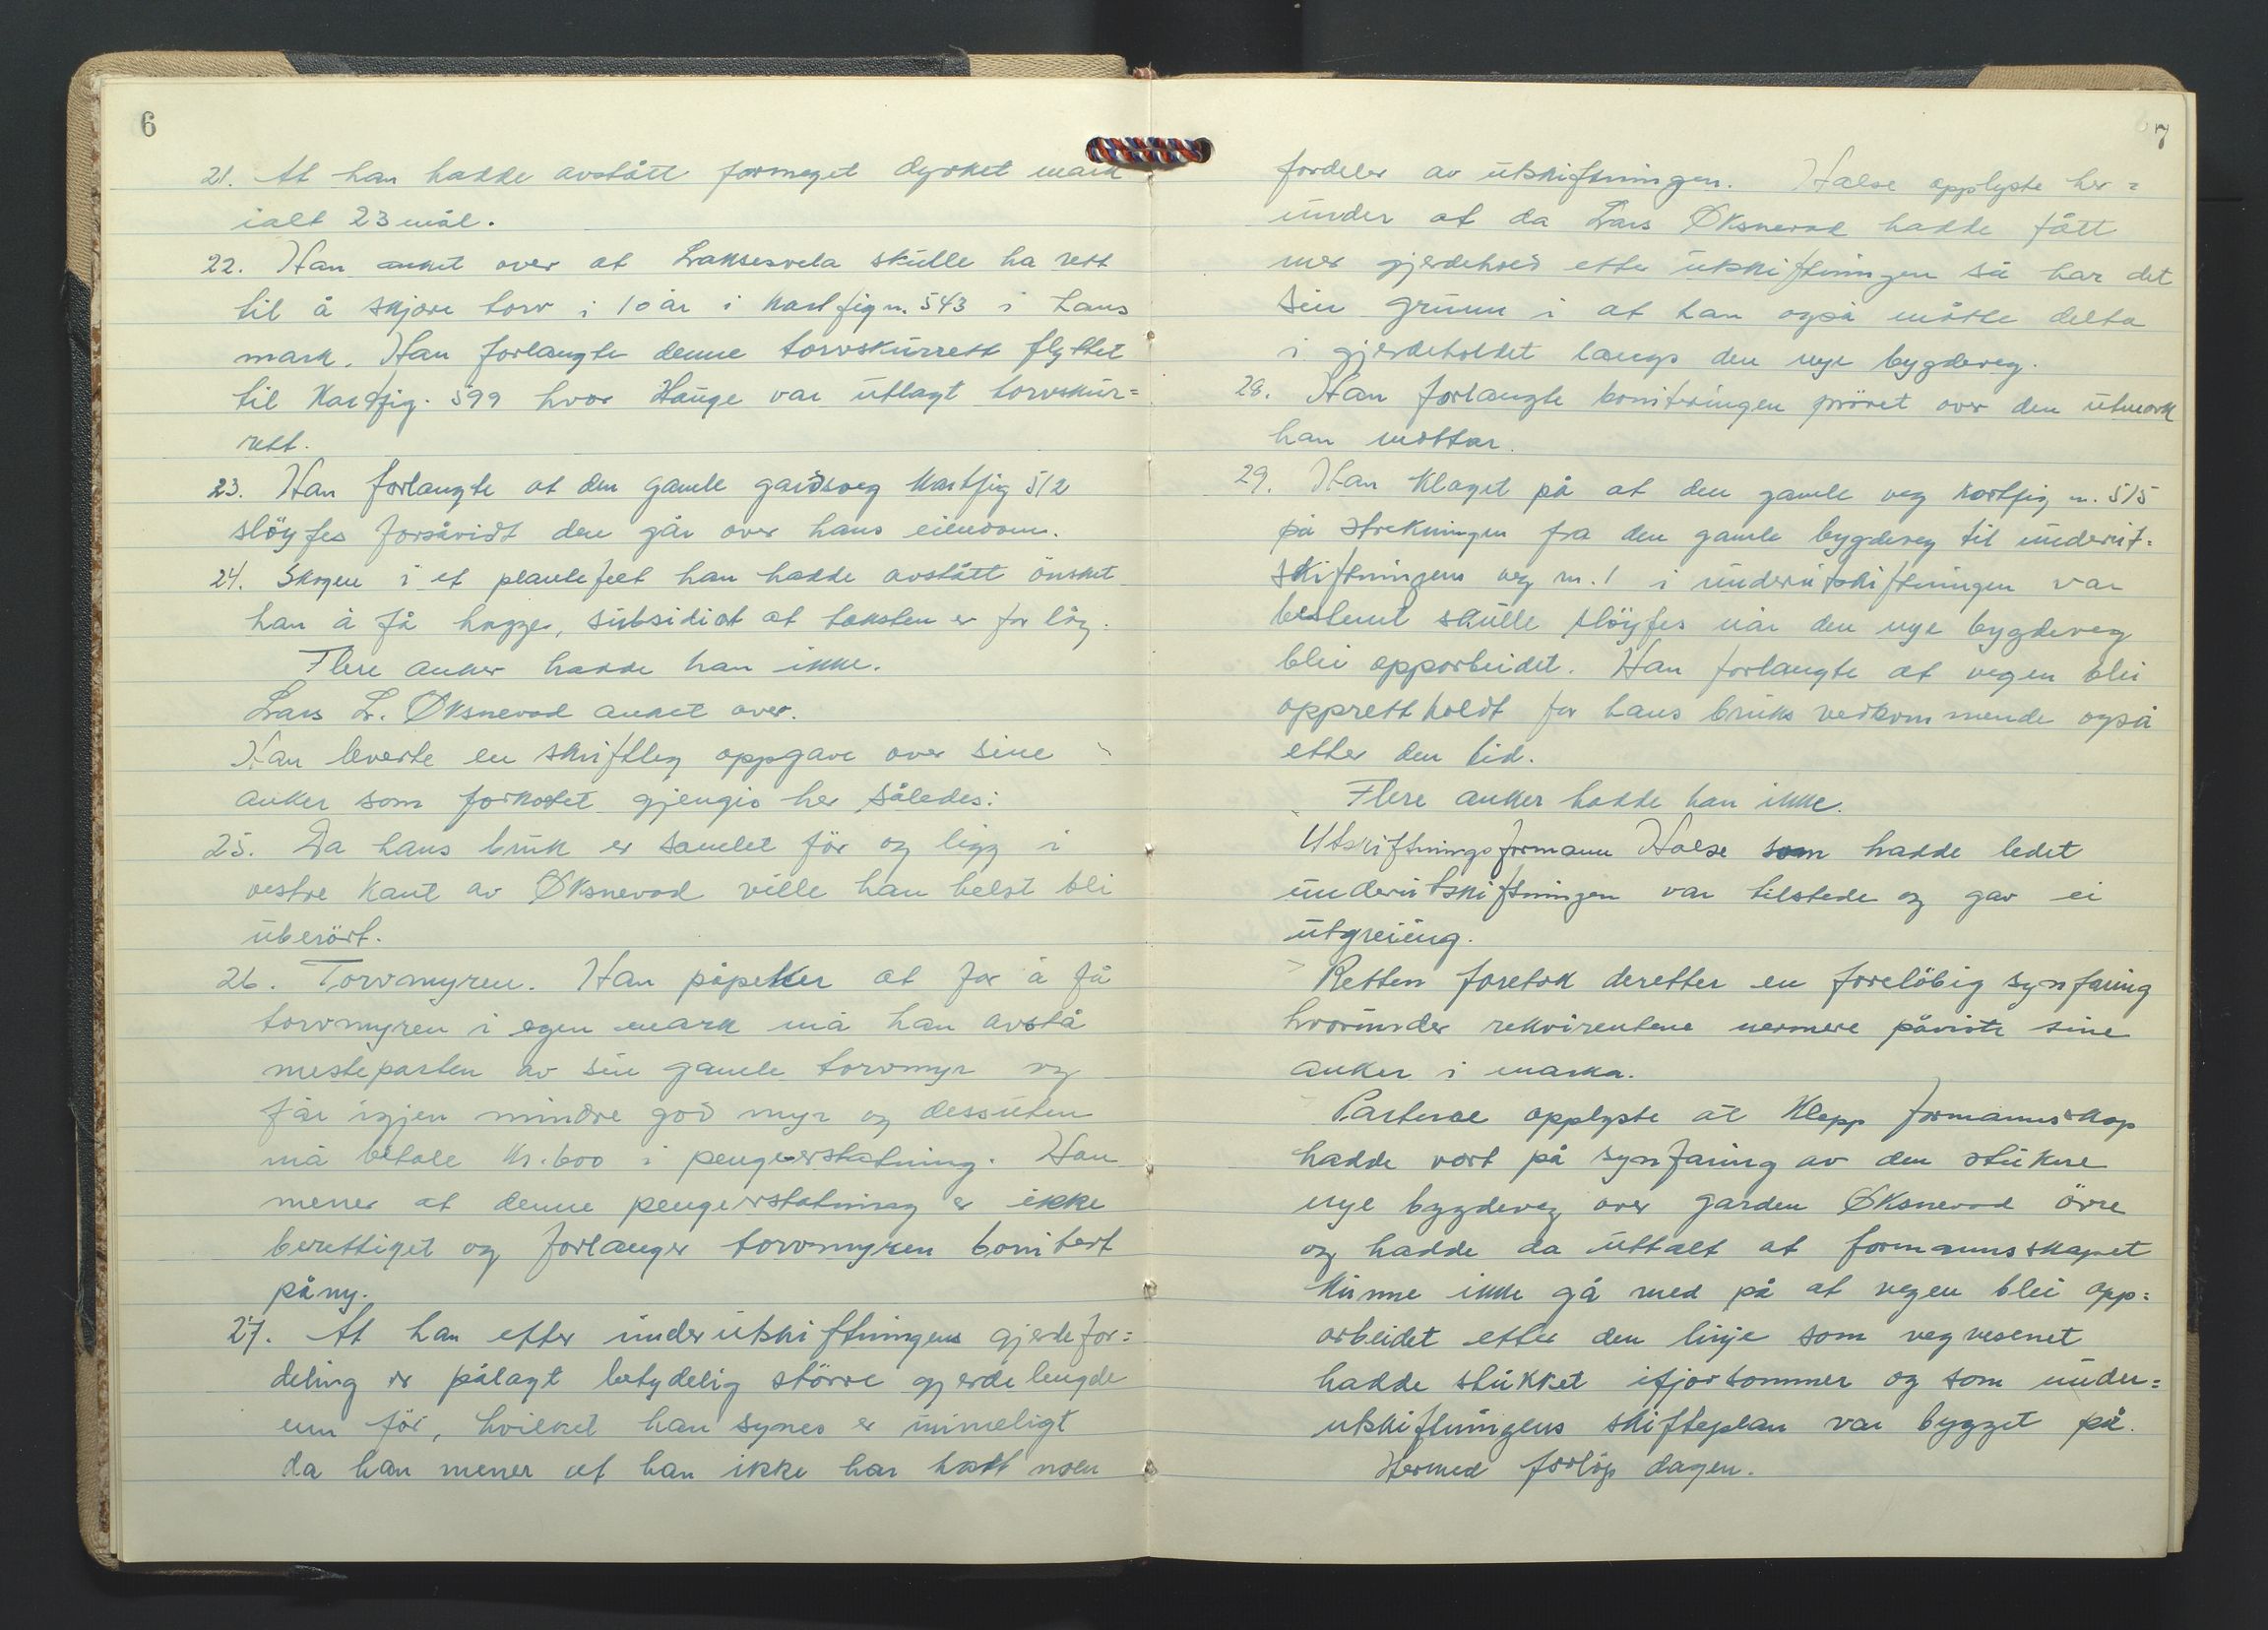 6
21. At han hadde avstått formeget dyrket mark
ialt 23 mål.
22. Han anket over at Laksesvela skulle ha rett
til å skjære torv i 10 år i Kartfig n. 543 i hans
mark. Han forlangte denne torvskurrett flyttet
til Kartfig. 599 hvor Hauge var utlagt torvskur=
rett.
23. Han forlangte at den gamle gardsveg Kartfig 512
slöyfes forsåvidt den går over hans eiendom.
24. Skogen i et plantefelt han hadde avstått önsket
han å få hogge, subsidiat at taksten er for låg.
Flere anker hadde han ikke.
Lars L. Øksnevad anket over.
Han leverte en skriftleg oppgave over sine
anker som forkortet gjengis her således:
25. Da hans bruk er samlet för og ligg i
vestre kant av Øksnevad ville han helst bli
uberört.
26. Torvmyren. Han påpeker at for å få
torvmyren i egen mark må han avstå
mesteparten av sin gamle torvmyr og
får igjen mindre god myr og dessuten
må betale kr. 600 i pengeerstatning. Han
mener at denne pengeerstatning er ikke
berettiget og forlanger torvmyren bonitert
påny.
27. At han efter underutskiftningens gjerdefor=
deling er pålagt betydelig större gjerdelengde
enn för, hvilket han synes er urimeligt
da han mener at han ikke har hatt noen
7
fordeler av utskiftningen. Halse opplyste her=
under at da Lars Øksnevad hadde fått
mer gjerdehold etter utskiftningen så har det
sin grunn i at han også måtte delta
i gjerdeholdet langs den nye bygdeveg.
28. Han forlangte boniteringen prövet over den utmark
han mottar.
29. Han klaget på at den gamle veg kartfig n. 515
på strekningen fra den gamle bygdeveg til underut=
skiftningens veg nr. 1 i underutskiftningen var
bestemt skulle slöyfes når den nye bygdeveg
blei opparbeidet. Han forlangte at vegen blei
opprettholdt for hans bruks vedkommende også
etter den tid.
Flere anker hadde han ikke.
Utskiftningsformann Halse som hadde ledet
underutskiftningen var tilstede og gav ei
utgreiing.
Retten foretok deretter en forelöbig synfaring
hvorunder rekvirentene nermere påviste sine
anker i marka.
Partene opplyste at Klepp formannskap
hadde vort på synfaring av den stukne
nye bygdeveg over garden Øksnevad övre
og hadde da uttalt at formannsskapet
kunne ikke gå med på at vegen blei opp=
arbeidet etter den linje som vegvesenet
hadde stukket ifjorsommer og som under=
utskiftningens skifteplan var bygget på.
Hermed forlöp dagen.